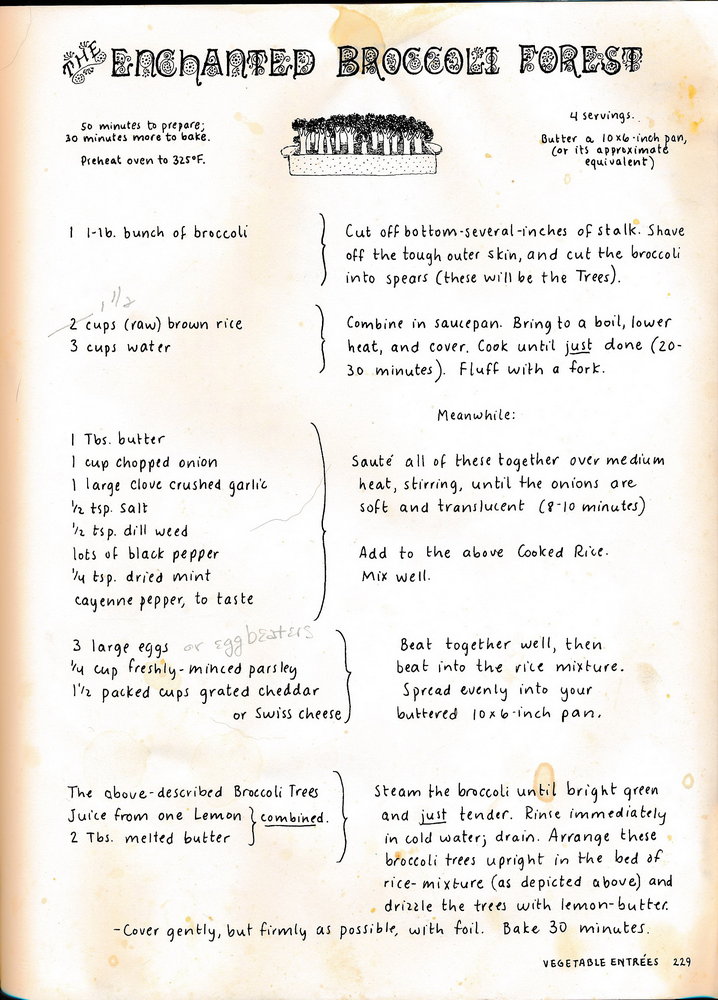 THE ENCHANTED BROCCOLI FOREST
50 minutes to prepare;
30 minutes more to bake.
Preheat oven to 325°F.
4 servings.
Butter a 10x6-inch pan,
(or its approximate
equivalent)
1 1-lb. bunch of broccoli
Cut off bottom-several-inches of stalk. Shave
off the tough outer skin, and cut the broccoli
into spears (these will be the Trees).
1 1/2
2 cups (raw) brown rice
3 cups water
Combine in saucepan. Bring to a boil, lower
heat, and cover. Cook until just done (20-
30 minutes). Fluff with a fork.
Meanwhile:
1 Tbs. butter
1 cup chopped onion
1 large clove crushed garlic
½ tsp. salt
½ tsp. dill weed
lots of black pepper
¼ tsp. dried mint
cayenne pepper, to taste
Sauté all of these together over medium
heat, stirring, until the onions are
soft and translucent (8-10 minutes)
Add to the above Cooked Rice.
Mix well.
3 large eggs or eggbeaters
¼ cup freshly-minced parsley
1½ packed cups grated cheddar
or Swiss cheese
Beat together well, then
beat into the rice mixture.
Spread evenly into your
buttered 10x6-inch pan.
The above-described Broccoli Trees
Juice from one Lemon } combined.
2 Tbs. melted butter
Steam the broccoli until bright green
and just tender. Rinse immediately
in cold water; drain. Arrange these
broccoli trees upright in the bed of
rice-mixture (as depicted above) and
drizzle the trees with lemon-butter.
-Cover gently, but firmly as possible, with foil. Bake 30 minutes.
VEGETABLE ENTRÉES 229